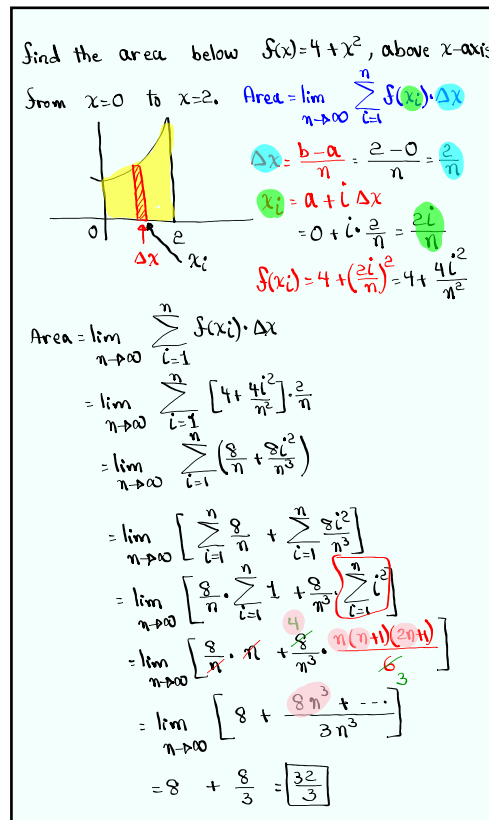 find the area below f(x)=4+x², above x-axis
from x=0 to x=2.
Area = lim n→∞ ∑ i=1 n f(xᵢ)·Δx
Δx = (b-a)/n = (2-0)/n = 2/n
xᵢ = a + i Δx
= 0 + i·2/n = 2i/n
f(xᵢ) = 4+(2i/n)² = 4+ 4i²/n²
0 2
Δx xᵢ
Area = lim n→∞ ∑ i=1 n f(xᵢ)·Δx
= lim n→∞ ∑ i=1 n [4+ 4i²/n²]·2/n
= lim n→∞ ∑ i=1 n (8/n + 8i²/n³)
= lim n→∞ [∑ i=1 n 8/n + ∑ i=1 n 8i²/n³]
= lim n→∞ [8/n · ∑ i=1 n 1 + 8/n³ · ∑ i=1 n i²]
4
= lim n→∞ [8/n · n + 8/n³ · n(n+1)(2n+1)/6]
3
= lim n→∞ [8 + (8n³ + ---)/3n³]
= 8 + 8/3 = 32/3